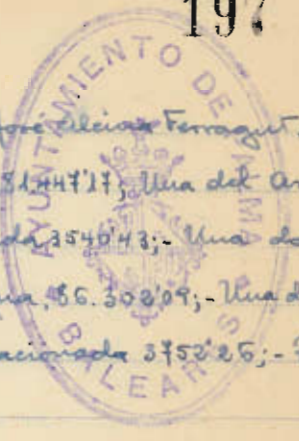 197
AYUNTAMIENTO DE PALMA
BALEARES
José Alcina Ferragut
81.447'17; Una del
da 3540'43;- Una
na, 86.302'09;- Una d
acionada 3752'26;-